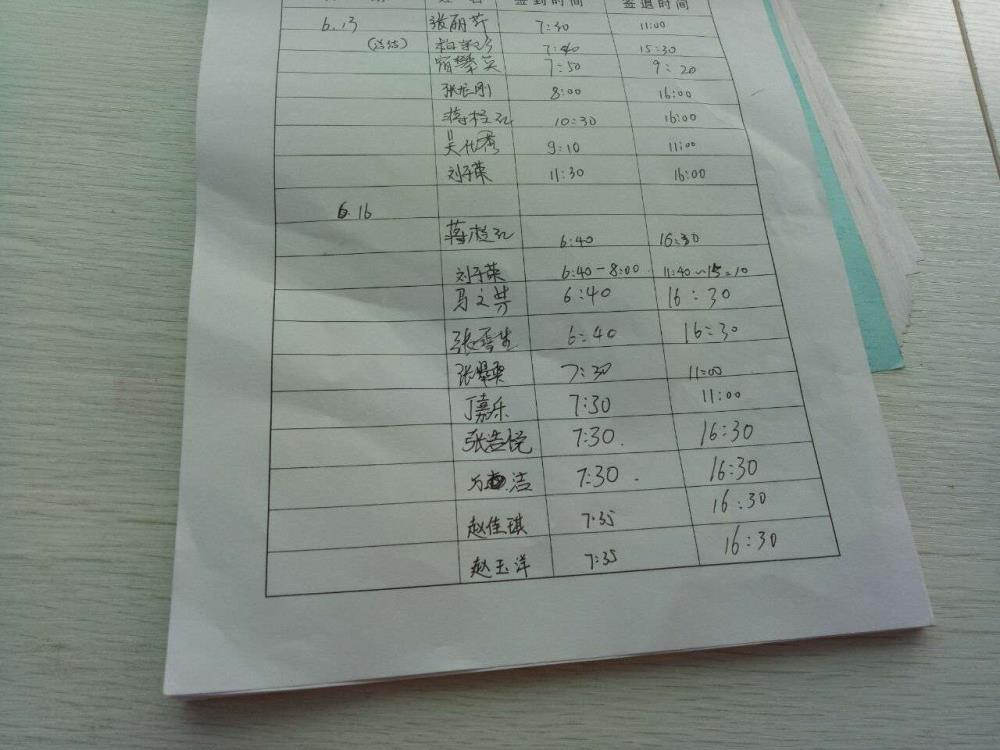 签到时间 签退时间
6.13 张丽芹 7:30 11:00
7:40 15:30
攀英 7:50 9:20
张宏刚 8:00 16:00
蒋桂 10:30 16:00
吴 9:10 11:00
刘子荣 11:30 16:00
6.16
蒋桂 6:40 16:30
刘子荣 6:40-8:00 11:40~15:10
马文 6:40 16:30
张 6:40 16:30
张 7:30 11:00
丁嘉乐 7:30 11:00
张浩悦 7:30. 16:30
洁 7:30. 16:30
赵佳琪 7:35 16:30
赵玉洋 7:35 16:30